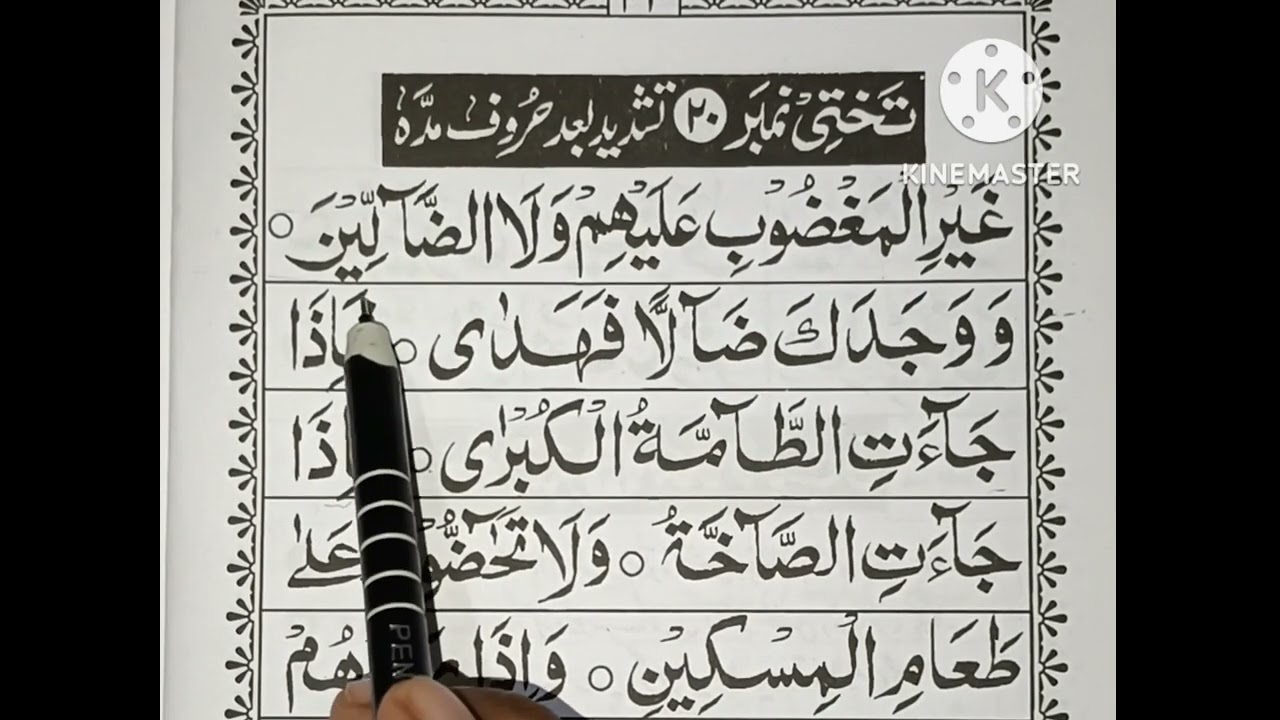 تَختِیْ نمبَر ٢٠ تشدید بعد حُرُوفِ مدَّہْ
KINEMASTER
غَيْرِ الْمَغْضُوْبِ عَلَيْهِمْ وَلَا الضَّآلِّيْنَ ○
وَ وَجَدَكَ ضَآلًّا فَهَدٰى ○
جَآءَتِ الطَّآمَّةُ الْكُبْرٰى ○
جَآءَتِ الصَّآخَّةُ ○ وَلَا عَلٰى
طَعَامِ الْمِسْكِيْنِ ○
PEN